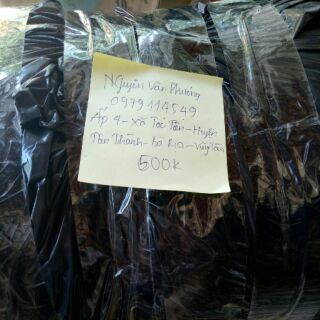 Nguyễn Văn Phương
0979114549
Ấp 4 - Xã Tóc Tiên - Huyện
Tân Thành - Bà Rịa - Vũng Tàu
500K